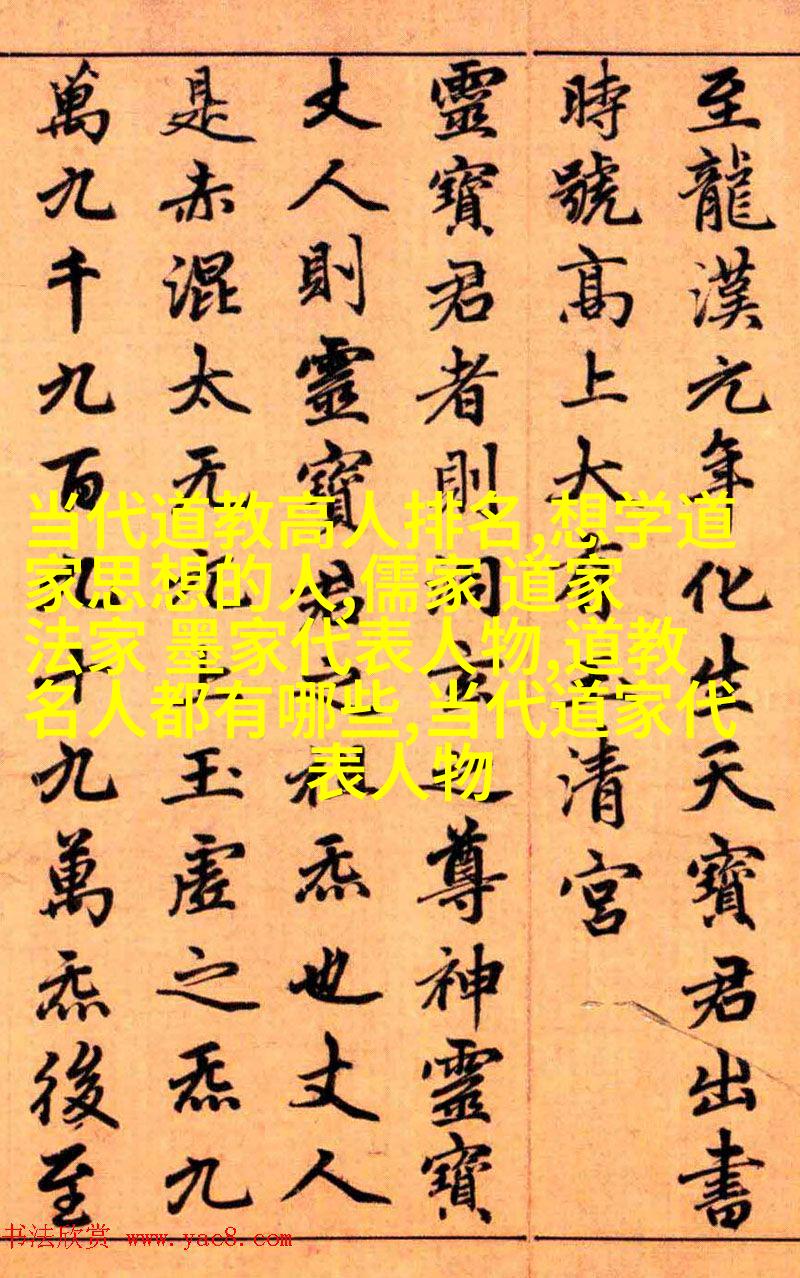 至龍漢元年化生天寶君出書
時號高上大有清宮
靈寶君者則洞玄之尊神靈寶
丈人則靈寶君祖炁也丈人
是赤混太无元上玉虛之炁九
萬九千九百九十九萬炁後至
当代道教高人排名,想学道
家思想的人,儒家 道家
法家 墨家代表人物,道教
名人都有哪些,当代道家代
表人物
书法欣赏 www.yac8.com